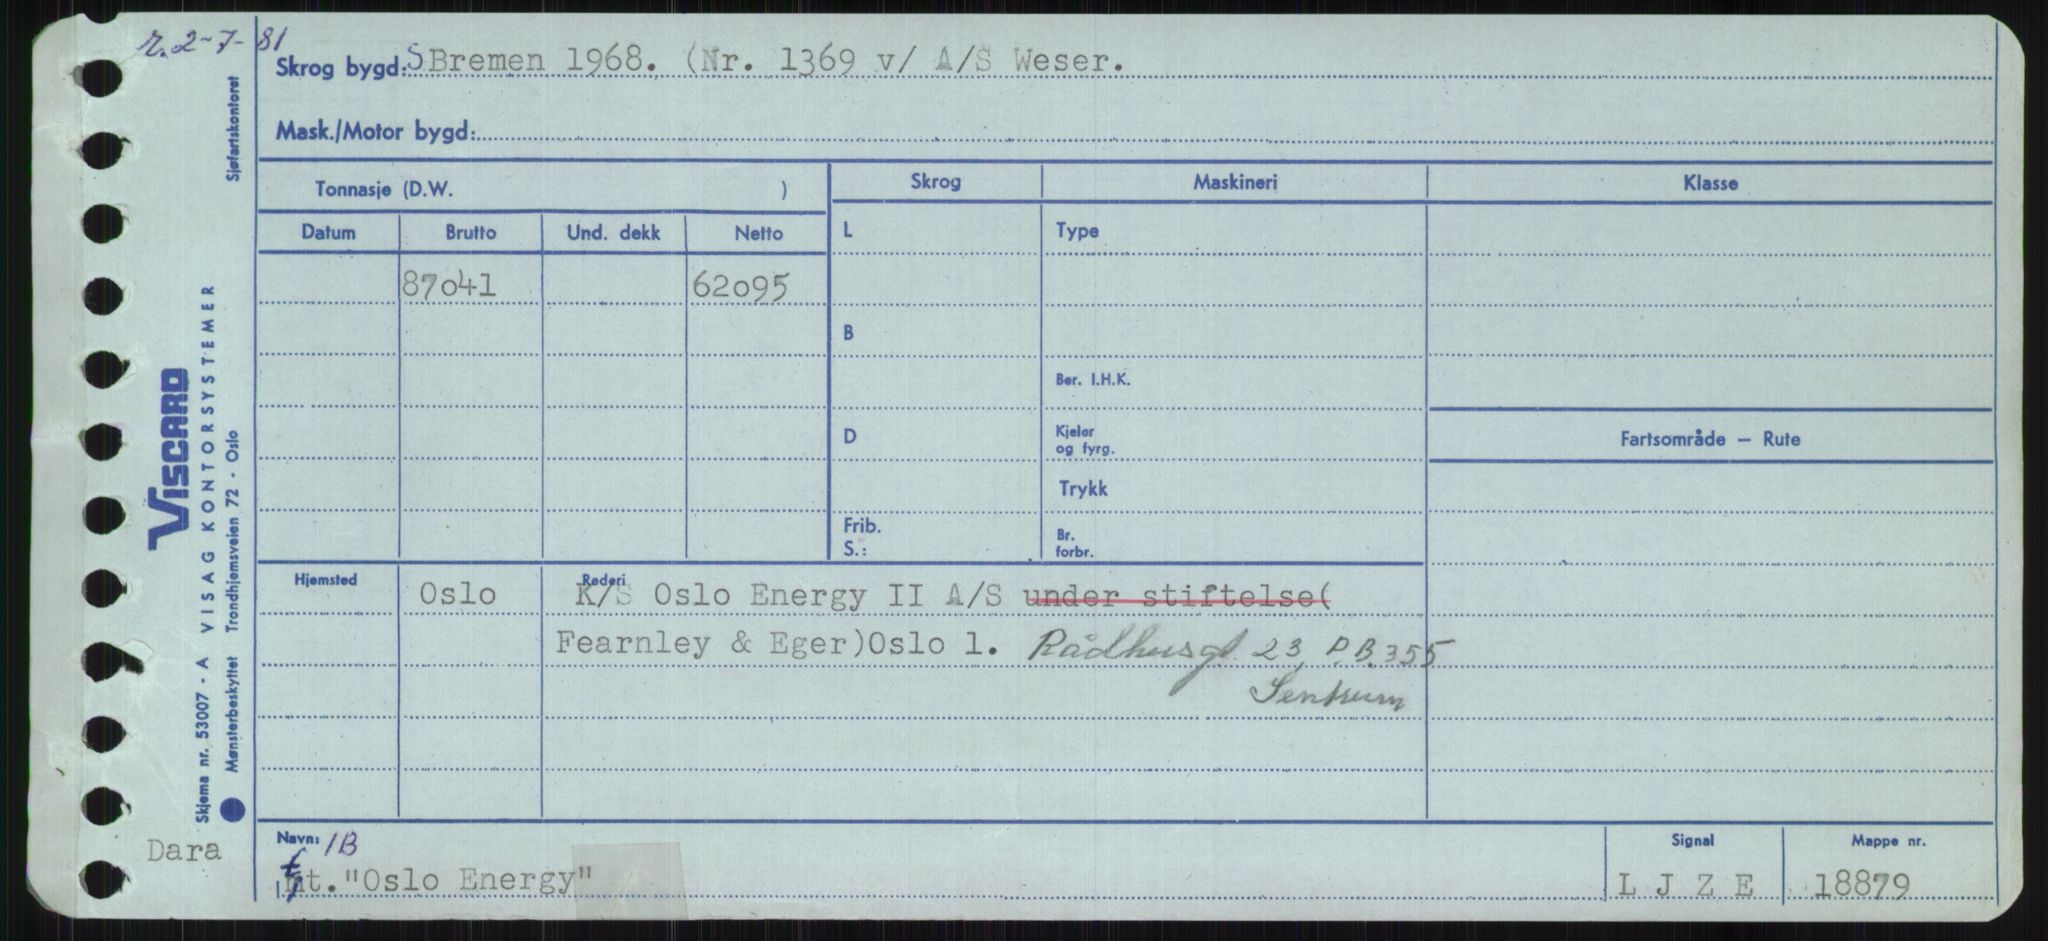 r. 2-7-81
Skrog bygd: S Bremen 1968. (Nr. 1369 v/ A/S Weser.
Mask./Motor bygd:
Tonnasje (D.W. )
Skrog Maskineri Klasse
Datum Brutto Und. dekk Netto
L Type
87o41 62o95
B
Ber. I.H.K.
D Kjeler og fyrg.
Fartsområde – Rute
Trykk
Frib.
S.: Br. forbr.
Hjemsted Oslo Rederi K/S Oslo Energy II A/S under stiftelse(
Fearnley & Eger)Oslo 1. Rådhusgt 23, P.B. 355
Sentrum
Navn: 1B
Signal Mappe nr.
t. "Oslo Energy"
L J Z E 18879
Dara
Sjøfartskontoret
VISCARD
VISAG KONTORSYSTEMER
Trondhjemsveien 72 - Oslo
Skjema nr. 53007 - A
Mønsterbeskyttet